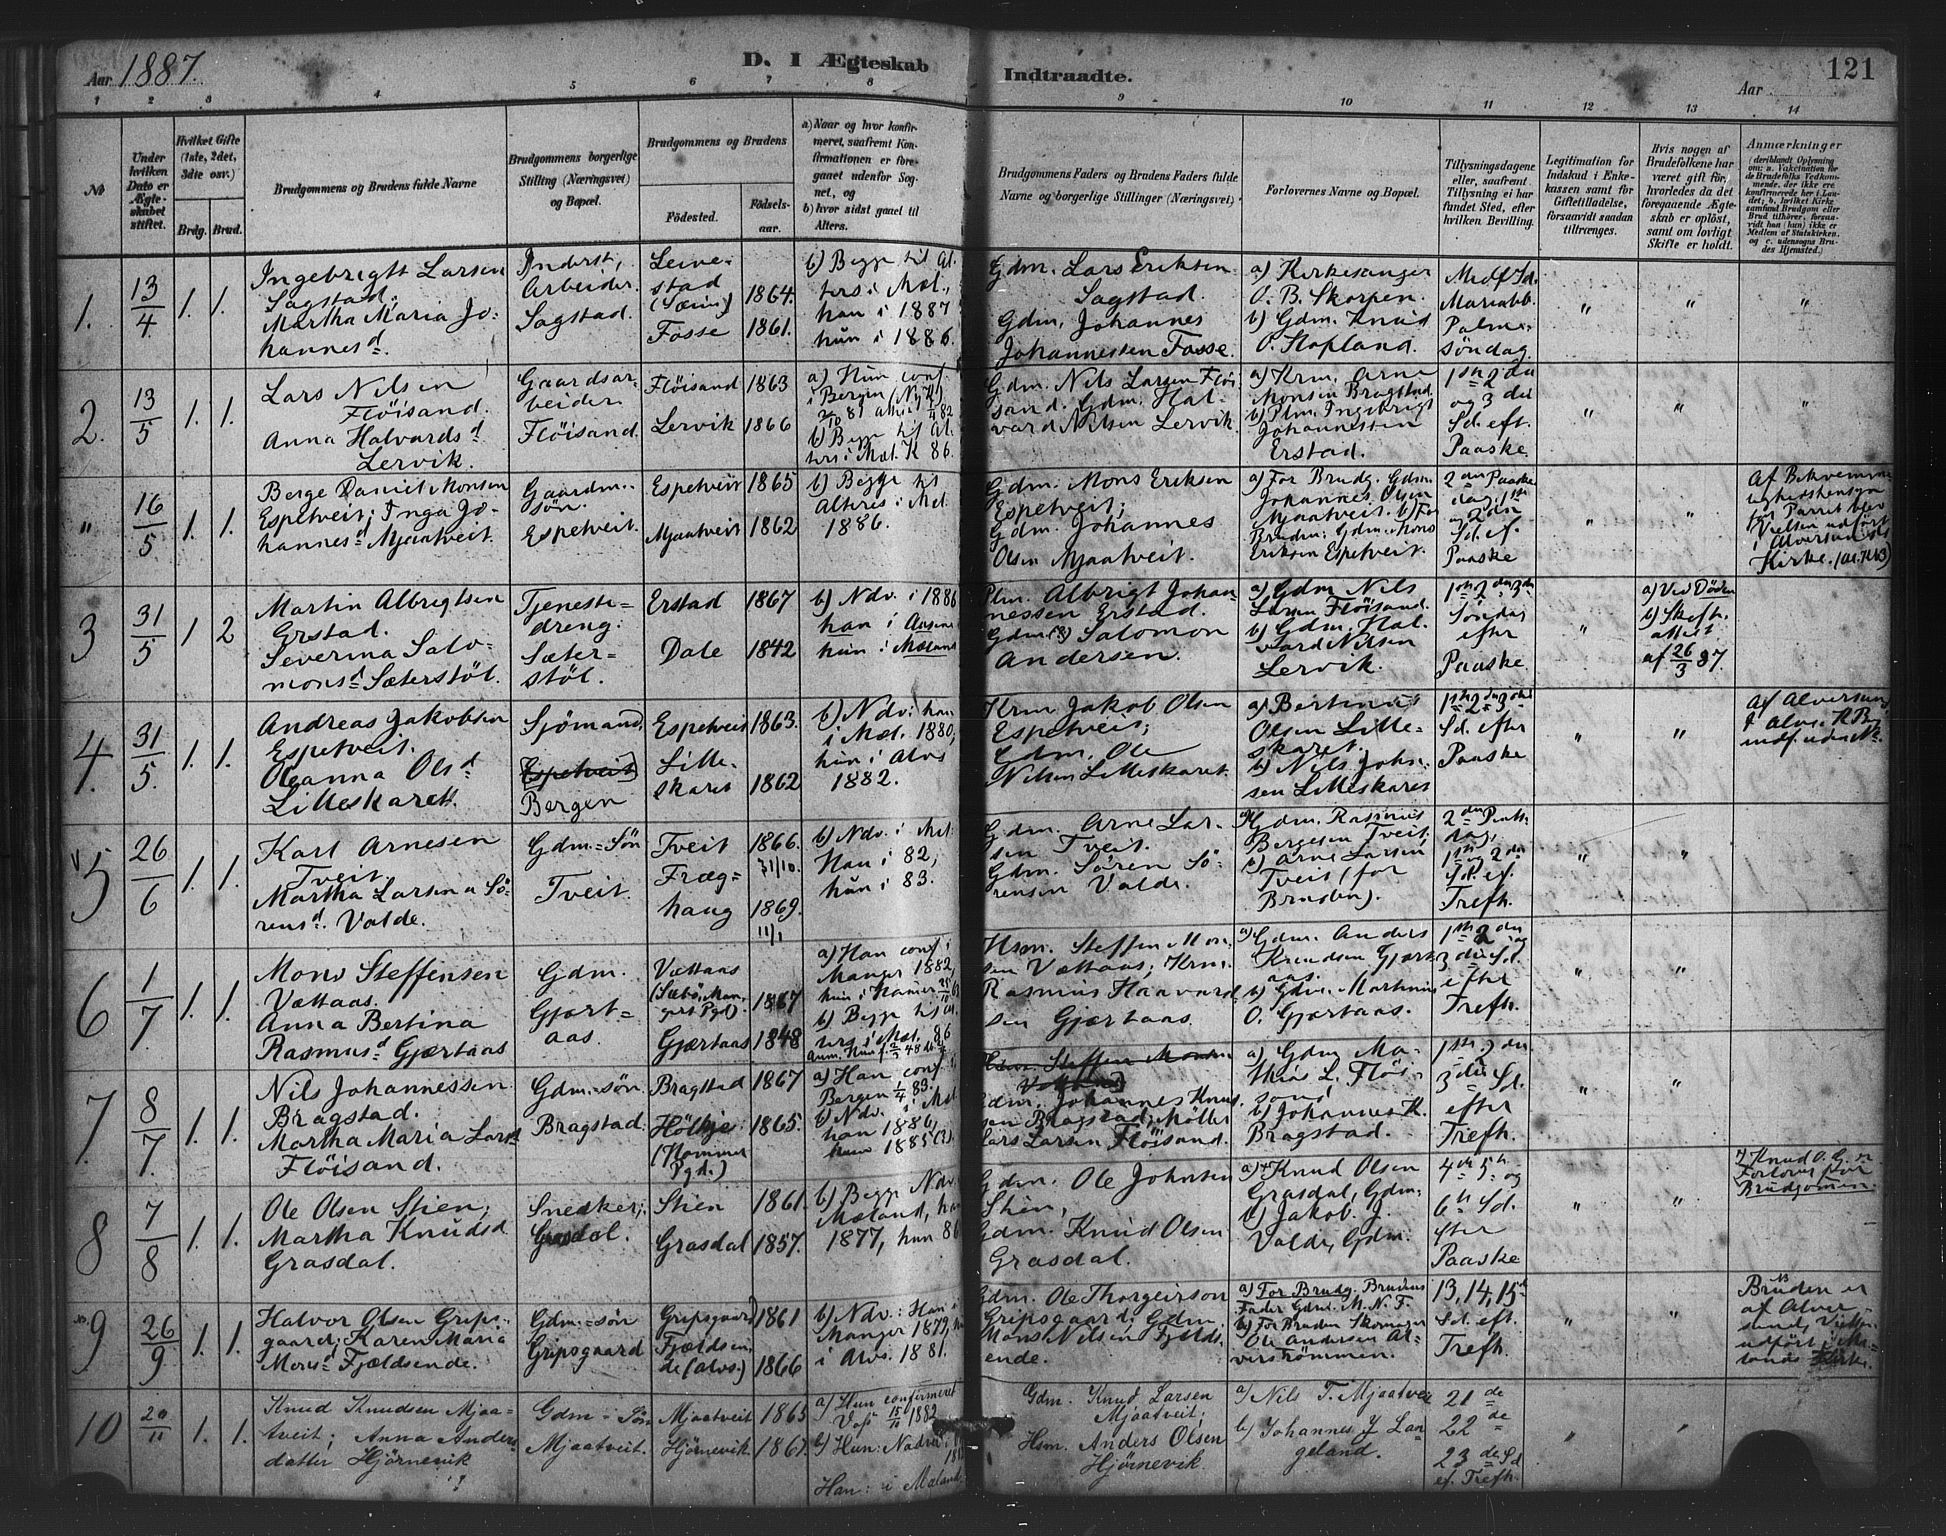 Aar 1887. D. I Ægteskab Indtraadte. Aar 121
1 2 3 4 5 6 7 8 9 10 11 12 13 14
№
Under hvilken Dato er Ægteskabet stiftet.
Hvilket Gifte (1ste, 2det, 3die osv.)
Brdg. Brud.
Brudgommens og Brudens fulde Navne
Brudgommens borgerlige Stilling (Næringsvei) og Bopæl.
Brudgommens og Brudens
Födested.
Födselsaar.
a) Naar og hvor konfirmeret, saafremt Konfirmationen er foregaaet udenfor Sognet, og
b) hvor sidst gaaet til Alters.
Brudgommens Faders og Brudens Faders fulde Navne og borgerlige Stillinger (Næringsvei)
Forlovernes Navne og Bopæl.
Tillysningsdagene eller, saafremt Tillysning ei har fundet Sted, efter hvilken Bevilling.
Legitimation for Indskud i Enkekassen samt for Giftetilladelse, forsaavidt saadan tiltrænges.
Hvis nogen af Brudefolkene har været gift för, hvorledes da det foregaaende Ægteskab er oplöst, samt om lovligt Skifte er holdt.
Anmærkninger
(deriblandt Oplysning om: a. Vaccination for de Brudefolks Vedkommende, der ikke ere konfirmerede her i Landet; b. hvilket Kirkesamfund Brudgom eller Brud tilhörer, forsaavidt han (hun) ikke er Medlem af Statskirken, og c. udensogns Brudes Hjemsted.)
1. 13/4 1. 1.
Ingebrigtt Larsen
Sagstad.
Martha Maria Jo-
hannesd.
Inderst,
Arbeider.
Sagstad.
Leire-
stad
(Sæim)
Fosse
1864.
1861.
b) Begge til Al-
ters i Mæl.,
han i 1887
hun i 1886.
Gdm. Lars Eriksen
Sagstad.
Gdm. Johannes
Johannessen Fosse.
a) Kirkesanger
O. B. Skorpen.
b) Gdm. Knud
O. Stopland.
Midf. Sd.
Mariæbb.
Palme-
söndag.
" " "
2. 13/5 1. 1.
Lars Nilsen
Flöisand.
Anna Halvardsd
Lervik.
Gaardsar-
beider
Flöisand.
Flöisand
Lervik
1863
1866
a) Hun conf.
i Bergen (Ny K.)
b) Begge til Al-
ters i Mæl. K 86.
Gdm. Nils Larsen Flöi-
sand. Gdm. Hal-
vard Nilsen Lervik.
a) Krm. Arne
Monsen Bragstad
b) Plm. Ingebrigt
Johannessen
Erstad.
1ste 2den
og 3die
Sd. eft.
Paaske.
" " "
" 16/5 1. 1.
Berge Daniel Monsen
Espetveit; Inga Jo-
hannesd Mjaatveit.
Gaardm.-
sön.
Espetveit.
Espetveit
Mjaatveit
1865
1862
b) Begge til
Alters i Mæl.
1886.
Gdm. Mons Eriksen
Espetveit;
Gdm. Johannes
Olsen Mjaatveit.
a) For Brudg. Gdm.
Johannes Olsen
Mjaatveit. b) For
Bruden: Gdm. Mons
Eriksen Espetveit.
2den Paaske
dag. 1ste
og 2den
Sd. ef.
Paaske
" "
Af Bekvemme-
lighedshensyn
for Parret blev
Vielsen udfört
i Alversunds
Kirke.
3 31/5 1 2
Martin Albregtsen
Erstad.
Severina Salo-
monsd Sæterstöl.
Tjeneste-
dreng.
Sæter-
stöl.
Erstad
Dale
1867
1842
b) Ndv. i 1886
han i
hun i Mæland
Plm. Albrigt Johan-
nessen Erstad.
Gdm. Salomon
Andersen.
a) Gdm. Nils
Larsen Flöisand.
b) Gdm. Hal-
vard Nilsen
Lervik.
1ste 2den 3die
Söndag
efter
Paaske.
"
a) Ved Döden
b) Skifte-
attest
af 26/3 87.
4. 31/5. 1. 1.
Andreas Jakobsen
Espetveit.
Oleanna Olsd
Lilleskaret.
Sjömand.
Espetveit
Bergen
Espetveit
Lille-
skaret
1863.
1862
b) Ndv: han
i Mæl. 1880,
hun i Alvs
1882.
Krm Jakob Olsen
Espetveit;
Gdm. Ole
Nilsen Lilleskaret.
a) Bertinus
Olsen Lille-
skaret.
b) Nils Johs.
sen Lilleskaret
1ste 2den 3die
Sd. efter
Paaske
" "
Af Alversund
I Alvs. K. B.
indf. uden №.
5 26/6 1. 1.
Karl Arnesen
Tveit.
Martha Larsina Sö-
rensd. Valde.
Gdm-Sön
Tveit.
Tveit
Fræg-
haug
1866.
31/10.
1869.
11/1
b) Ndv. i Mæl.
Han i 82,
hun i 83.
Gdm. Arne Lar-
sen Tveit.
Gdm. Sören Sö-
rensen Valde.
a) Gdm. Rasmus
Bergesen Tveit.
b) Arne Larsen
Tveit (for
Bruden).
2den Pinse
dag,
1ste og 2den
Sd. ef.
Trefh.
" "
6 1/7 1. 1.
Mons Steffensen
Vættaas.
Anna Bertina
Rasmusd Gjærtaas
Gdm.
Gjært-
aas.
Vættaas
(Sæbö, Man-
gers Pgd).
Gjærtaas
1867
1848
a) Han conf. i
Manger 1882,
hun i Hamer
b) Begge til Al-
ters i Mæl. 86
Hsm. Steffen Mon-
sen Vættaas; Krm.
Rasmus Haavard-
sen Gjærtaas.
a) Gdm. Anders
Knudsen Gjært-
aas.
b) Gdm. Martinus
O. Gjærtaas.
1ste 2den og
3die Sd.
efter
Trefh.
" "
7. 8/7. 1. 1.
Nils Johannessen
Bragstad.
Martha Maria Larsd
Flöisand.
Gdm.-sön
Bragstad.
Bragstad
Hölkje
(Hammer
Pgd.)
1867
1865.
a) Han conf. i
Bergen 1/4 83.
b) Ndv. i Mæl.
han 1886,
hun 1885 (?).
Hsm. Steffen Monsen
Vættaas
Gdm. Johannes Knud-
sen Bragstad; Möller
Lars Larsen Flöisand.
a) Gdm Ma-
thias L. Flöi-
sand
b) Johannes K.
Bragstad.
1ste 2den
3die Sd.
efter
Trefh.
" "
8 7/8 1. 1.
Ole Olsen Stien;
Martha Knudsd
Grasdal.
Snedker;
Grasdal.
Stien
Grasdal
1861.
1857.
b) Begge Ndv.
Mæland, han
1877, hun 86
Gdm. Ole Johnsen
Stien,
Gdm. Knud Olsen
Grasdal.
a) Knud Olsen
Grasdal, Gdm.
b) Jakob J.
Valde, Gdm.
4de 5te og
6te Sd.
efter
Paaske
" "
Knud O. G. er
Forlover for
Brudgomen.
9 26/9 1. 1.
Halvor Olsen Grips-
gaard; Karen Maria
Monsd Fjældsende.
Gdm.-sön
Gripsgaard
Gripsgaard
Fjældsen-
de (Alvs.)
1861
1866
b) Ndv.: Han i
Manger 1879, hun
i Alvs. 1881.
Gdm. Ole Thorgeirson
Gripsgaard; Gdm.
Mons Nilsen Fjælds-
ende.
a) For Brudg. Brudens
Fader Gdm. M. N. F.
b) For Bruden Skomager
Ole Andersen Al-
verströmmen.
13, 14, 15de
Sd. eft.
Trefh.
" "
NB
Bruden er
af Alver-
sund, Vielsen
udfört i Mæ-
lands Kirke.
10 20/11 1. 1.
Knud Knudsen Mjaa-
tveit; Anna Anders-
datter Hjörnevik
Gdm-Sön
Mjaatveit.
Mjaatveit
Hjörnevik
1865
1867.
a) Hun confirmeret
Voss 15/10 1882
b) Hun: Nadver i
Han: i Mæland
Gdm. Knud Larsen
Mjaatveit;
Hsm. Anders Olsen
Hjörnevik.
a) Nils T. Mjaatvei
b) Johannes J Lan-
geland.
21de
22de
23de Sd
ef. Trefh.
" "